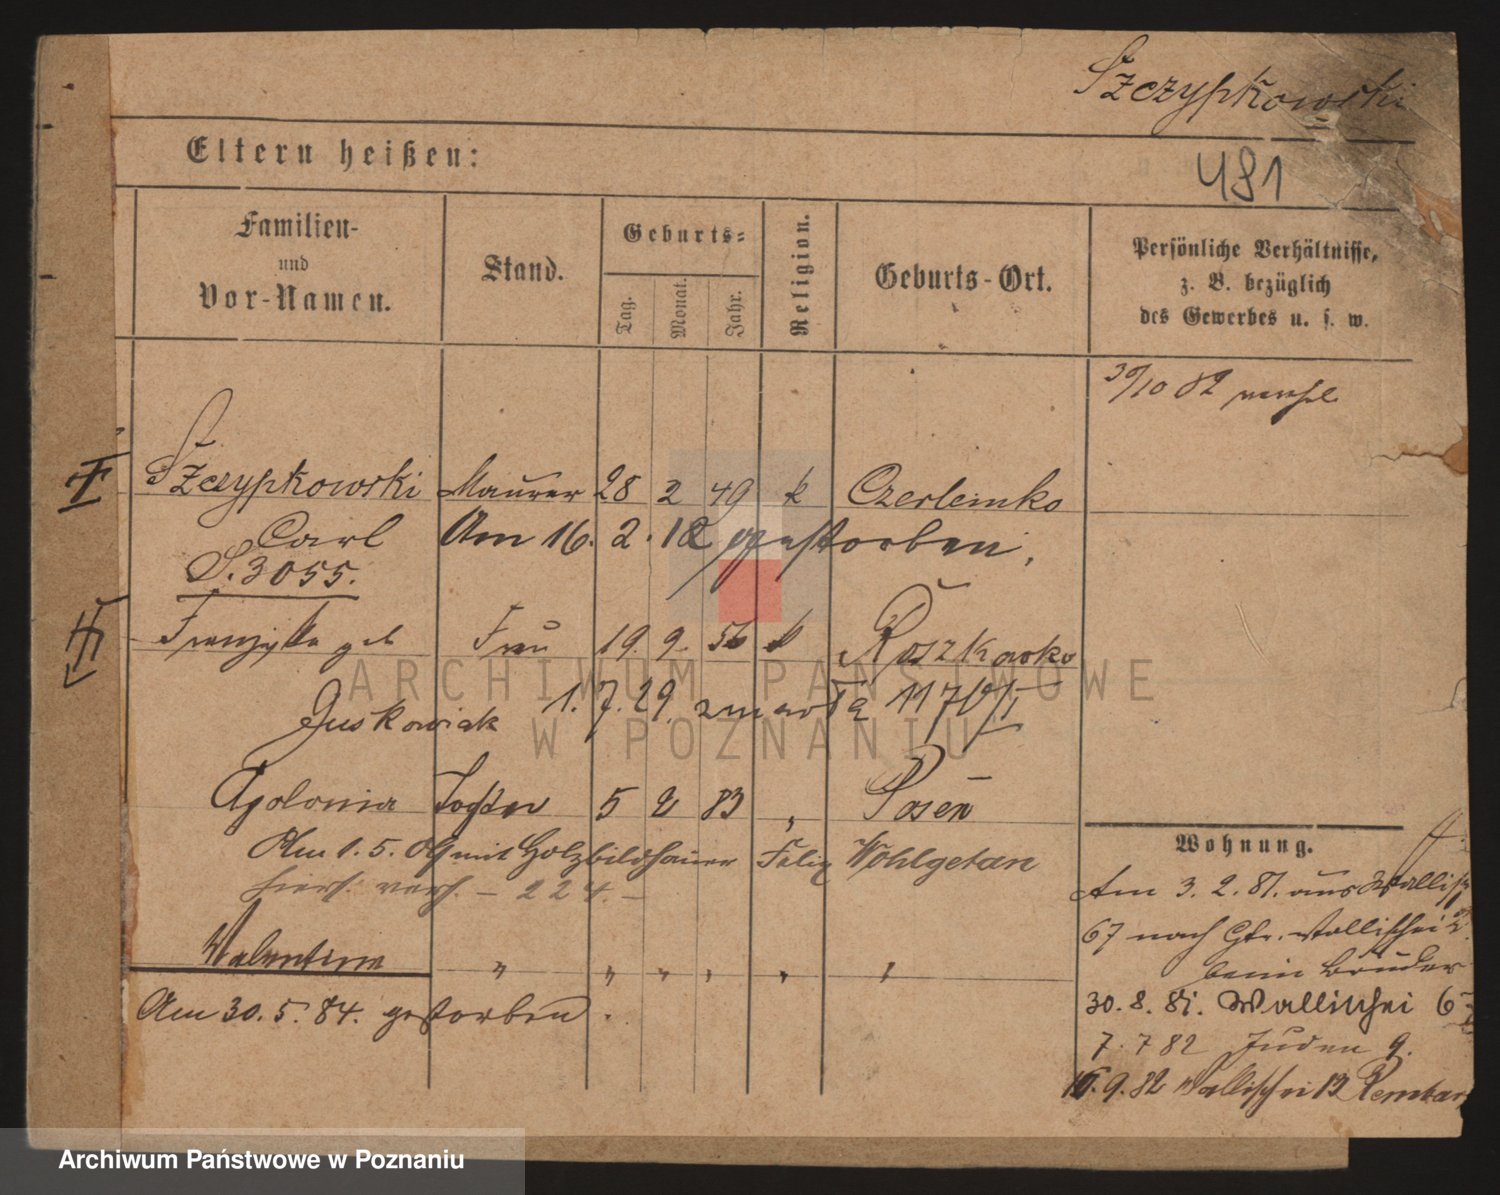 Szczypkowski
Eltern heißen:
481
Familien-
und
Vor-Namen.
Stand.
Geburts-
Tag.
Monat.
Jahr.
Religion.
Geburts-Ort.
Persönliche Verhältnisse,
z. B. bezüglich
des Gewerbes u. s. w.
30/10 82
I
Szczypkowski Maurer 28 2 49 k Czerleinko
Carl Am 16. 2. 12 gestorben.
S. 3055.
II
Franziska geb Frau 19. 9. 56 k Roszkowko
Juskowiak 1. 7. 29. zmarła 1170/II
Apolonia Tochter 5 2 83 " Posen
Am 1. 5. 09 mit Holzbildhauer Felix Wohlgetan
hier verh. – 224. –
Valentine " " " " " "
Am 30. 5. 84. gestorben.
Wohnung.
Am 3. 2. 81. aus Wallisch
67 nach Wallischei 2
beim Bruder
30. 8. 81. Wallischei 67
7. 7 82 Juden 9.
9. 82 Wallischei 13
ARCHIWUM PAŃSTWOWE
W POZNANIU
Archiwum Państwowe w Poznaniu